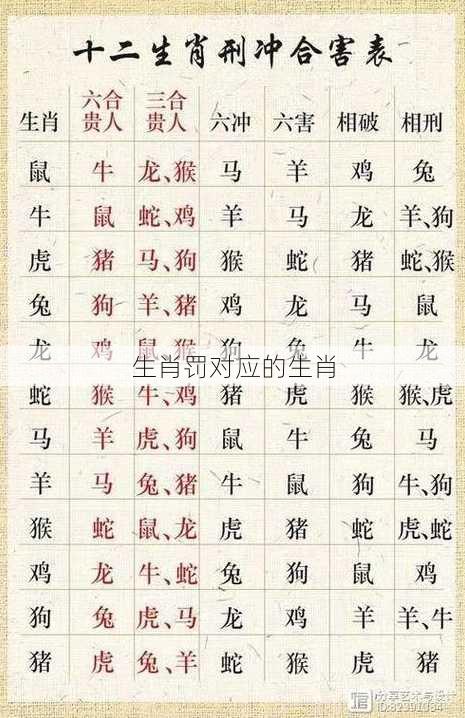 十二生肖刑冲合害表
六合 三合
生肖 贵人 贵人 六冲 六害 相破 相刑
鼠 牛 龙、猴 马 羊 鸡 兔
牛 鼠 蛇、鸡 羊 马 龙 羊、狗
虎 猪 马、狗 猴 蛇 猪 蛇、猴
兔 狗 羊、猪 鸡 龙 马 鼠
龙 鸡 鼠、猴 狗 兔 牛 龙
生肖罚对应的生肖
蛇 猴 牛、鸡 猪 虎 猴 猴、虎
马 羊 虎、狗 鼠 牛 兔 马
羊 马 兔、猪 牛 鼠 狗 牛、狗
猴 蛇 鼠、龙 虎 猪 蛇 虎、蛇
鸡 龙 牛、蛇 兔 狗 鼠 鸡
狗 兔 虎、马 龙 鸡 羊 羊、牛
猪 虎 兔、羊 蛇 猴 虎 猪